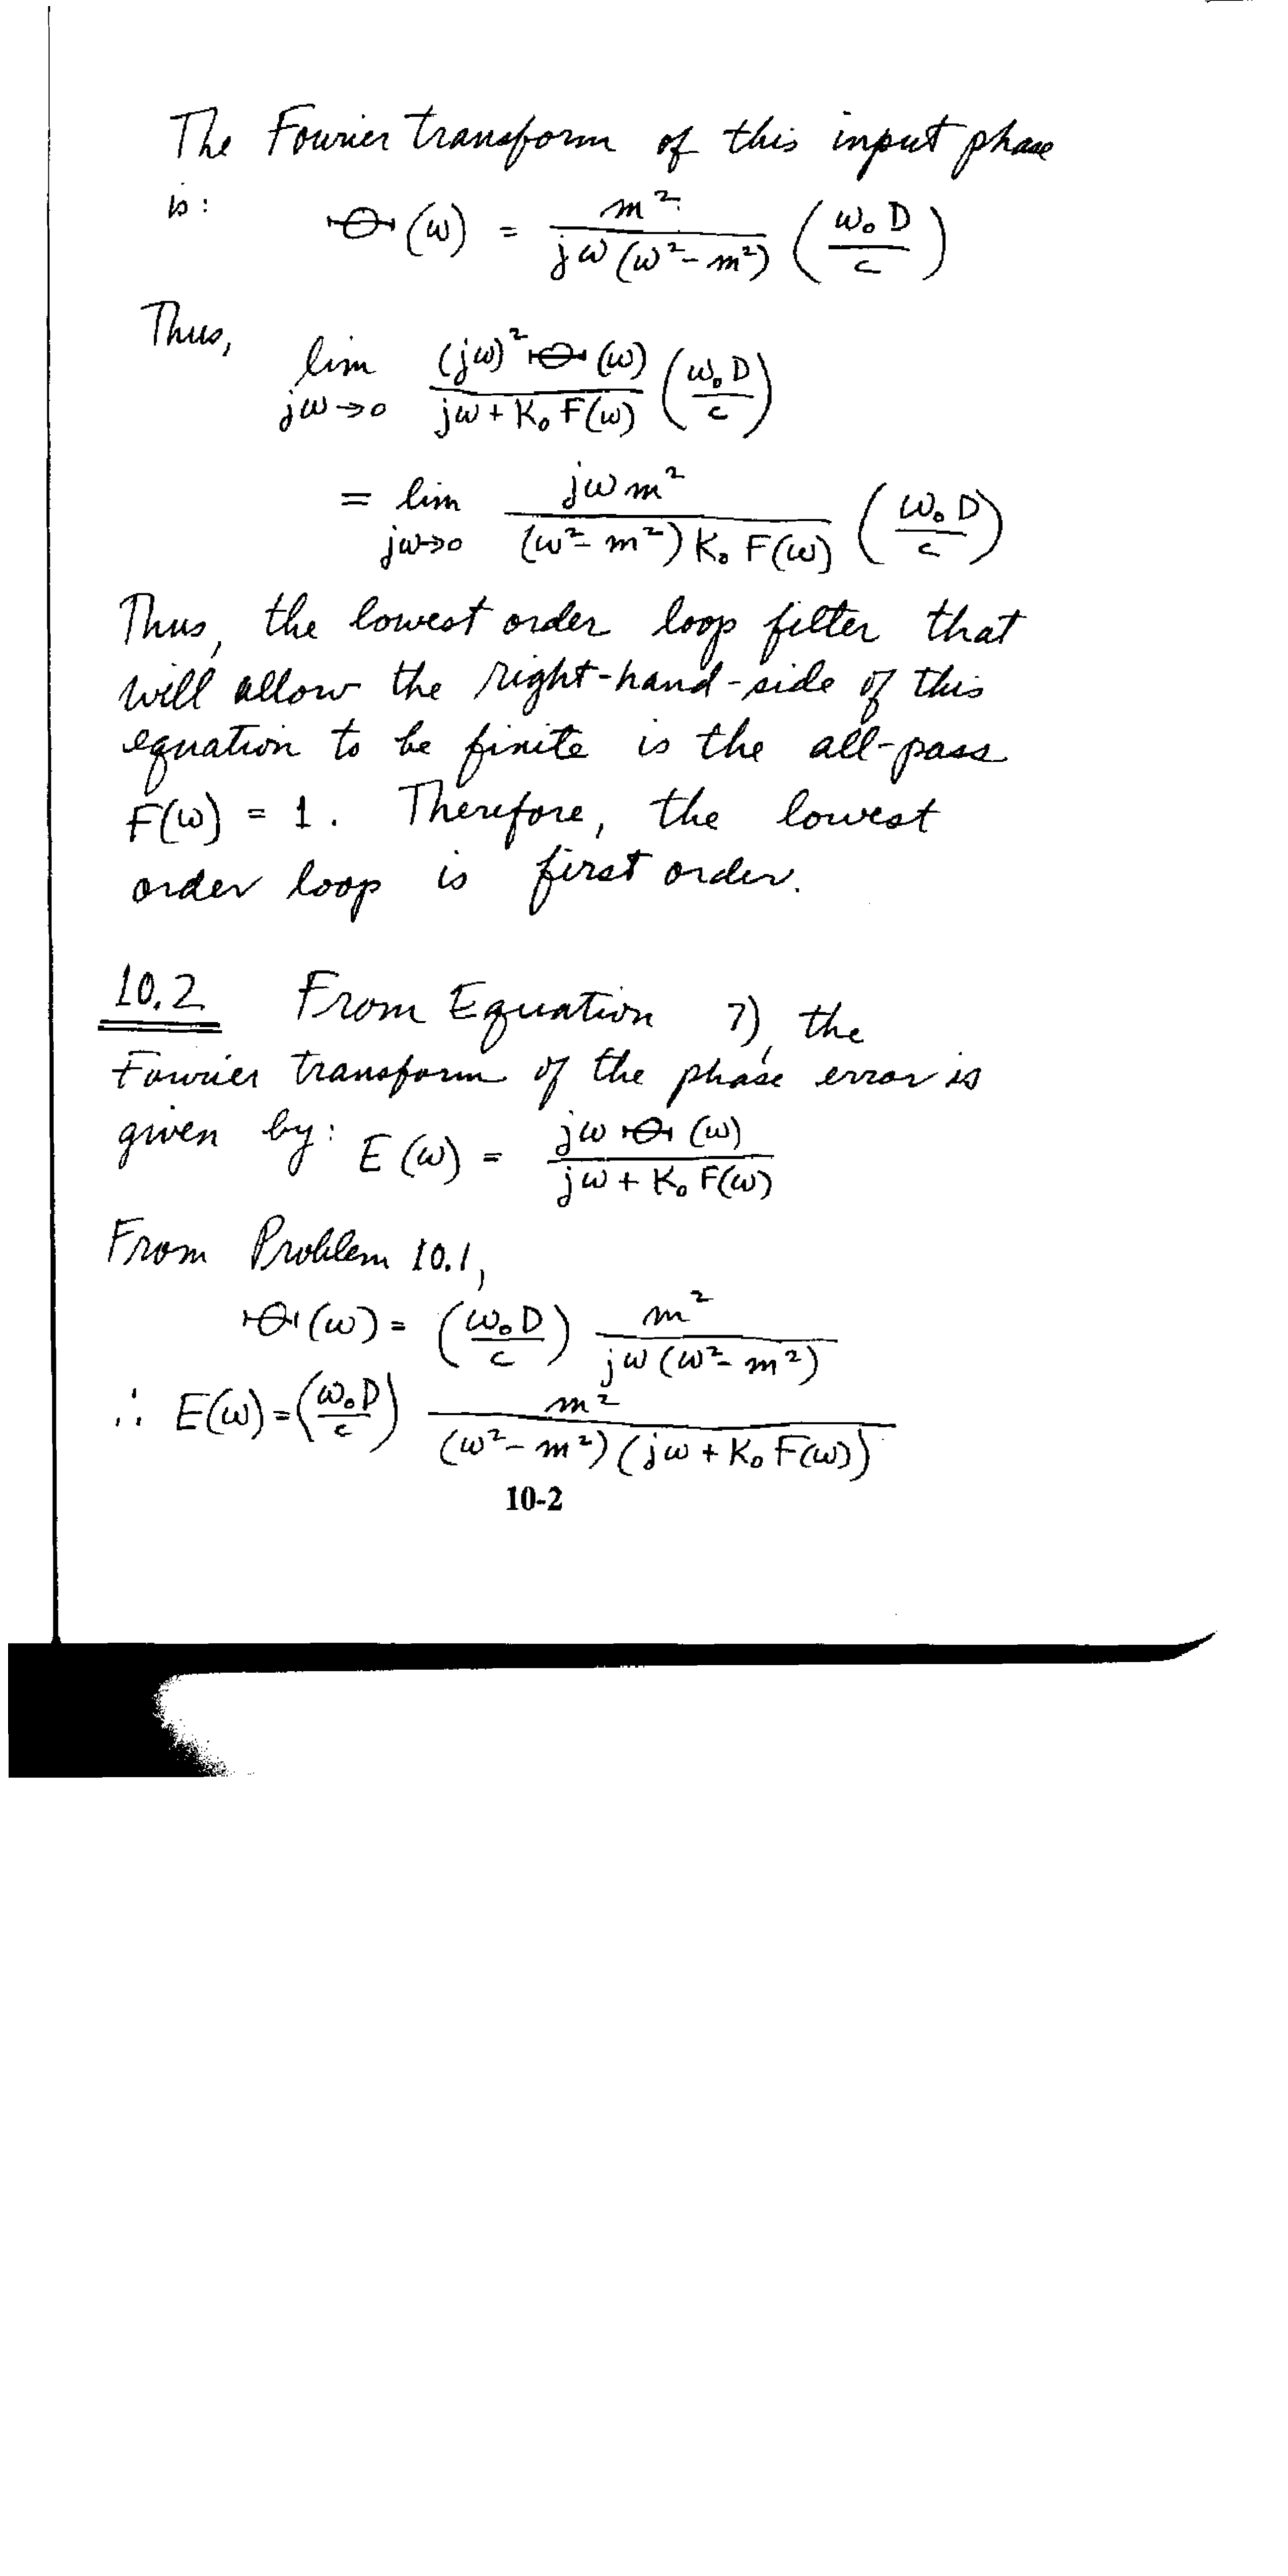 The Fourier transform of this input phase
is: Θ(ω) = m² / (jω(ω² − m²)) (ω₀D/c)
Thus, lim_{jω→0} (jω)² Θ(ω) / (jω + K₀F(ω)) (ω₀D/c)
= lim_{jω→0} jωm² / ((ω² − m²) K₀F(ω)) (ω₀D/c)
Thus, the lowest order loop filter that
will allow the right-hand-side of this
equation to be finite is the all-pass
F(ω) = 1. Therefore, the lowest
order loop is first order.
10.2 From Equation 7), the
Fourier transform of the phase error is
given by: E(ω) = jωΘ(ω) / (jω + K₀F(ω))
From Problem 10.1,
Θ(ω) = (ω₀D/c) m² / (jω(ω² − m²))
∴ E(ω) = (ω₀D/c) m² / ((ω² − m²)(jω + K₀F(ω)))
10-2